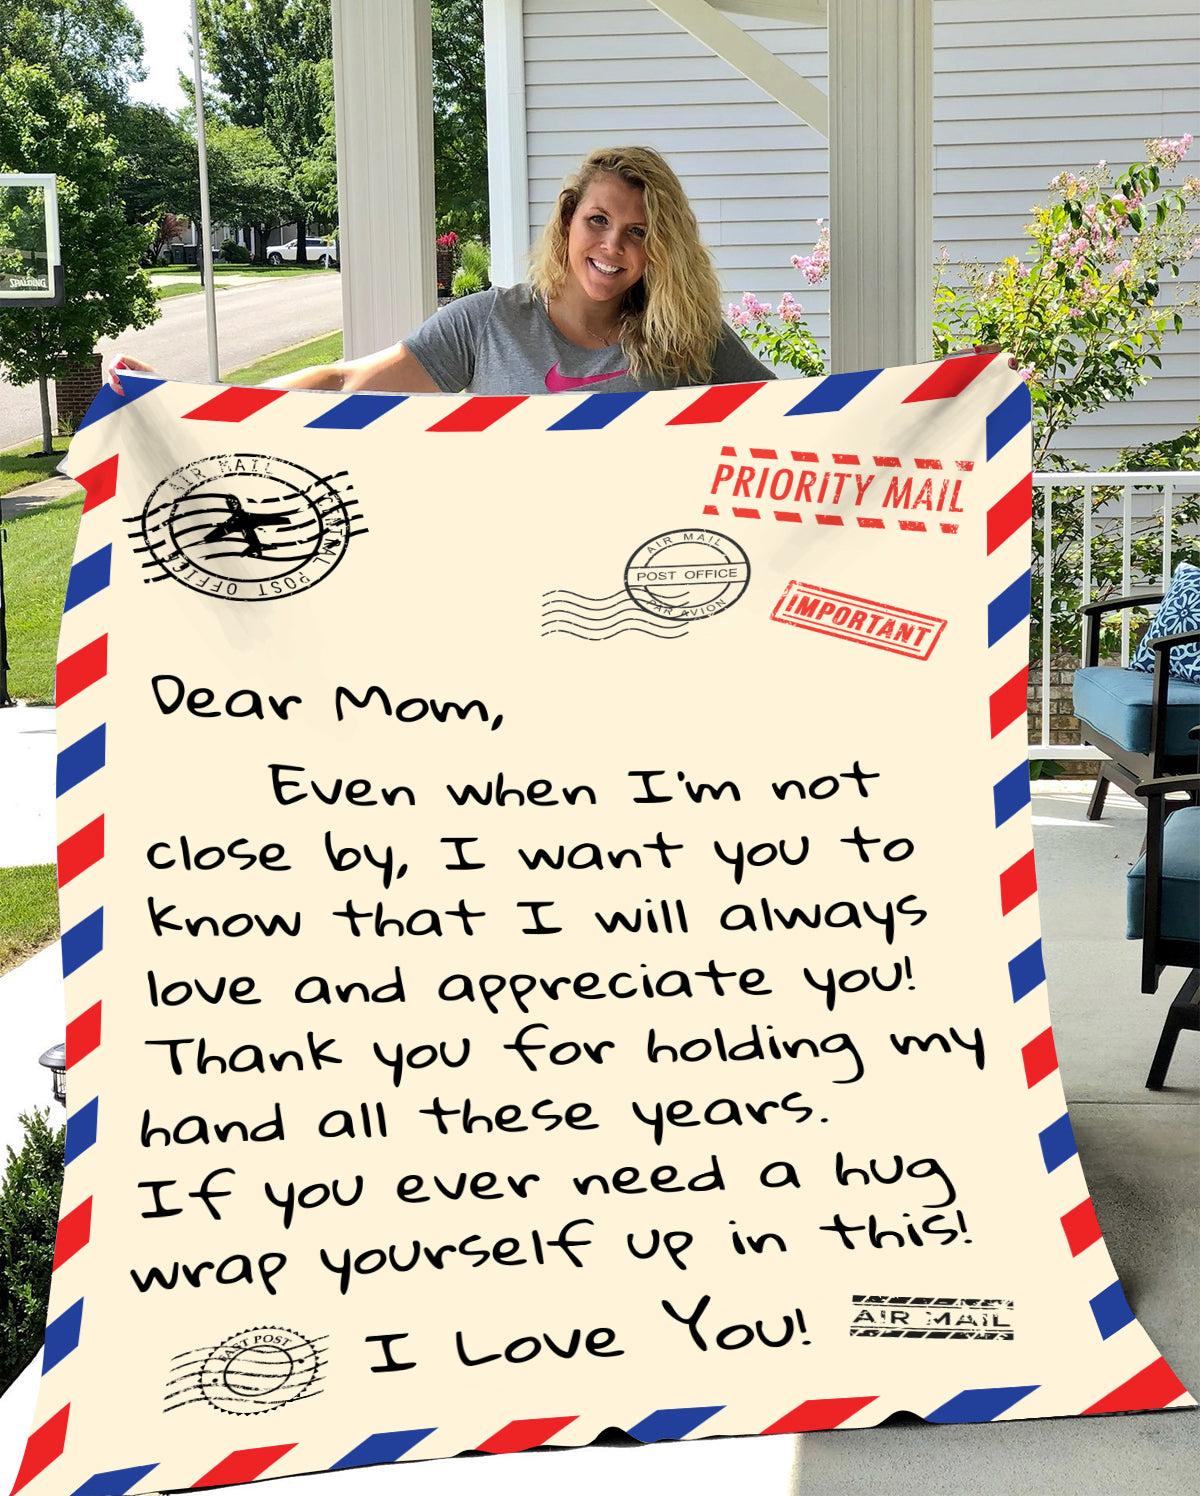 SPALDING
AIR MAIL
CENTRAL POST OFFICE
PRIORITY MAIL
AIR MAIL
POST OFFICE
PAR AVION
IMPORTANT
Dear Mom,
Even when I'm not
close by, I want you to
know that I will always
love and appreciate you!
Thank you for holding my
hand all these years.
If you ever need a hug
wrap yourself up in this!
I Love You!
AIR MAIL
FAST POST